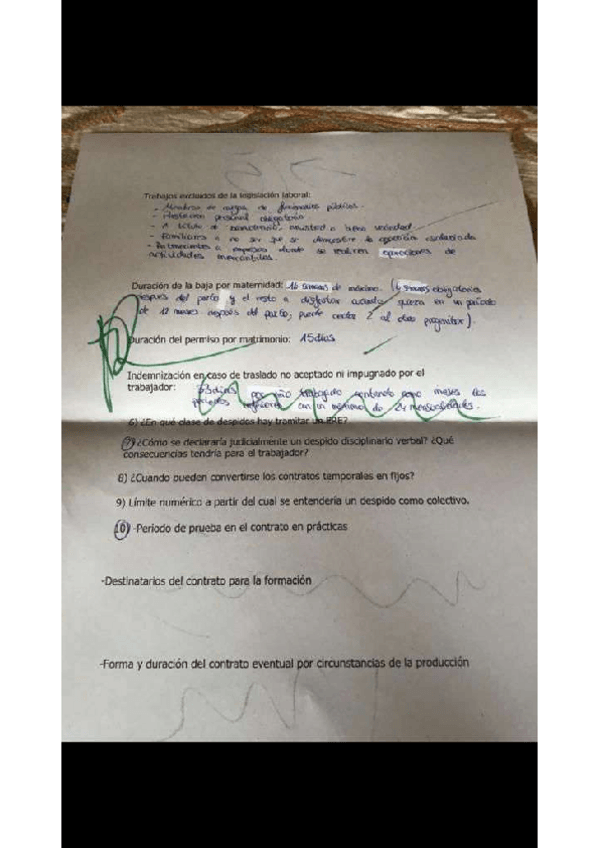 Trabajos excluidos de la legislación laboral:
- de cargos de funcionarios públicos.
- Prestación personal obligatoria.
- A título de amistad o buena vecindad.
- Familiares a no ser que se demuestre la
- empresas donde se realicen operaciones de
actividades mercantiles.
Duración de la baja por maternidad: 16 semanas de máximo. (6 semanas obligatorias
después del parto y el resto a disfrutar cuando quiera en un periodo
de 12 meses después del parto; puede ceder 2 al otro progenitor).
Duración del permiso por matrimonio: 15 días
Indemnización en caso de traslado no aceptado ni impugrado por el
trabajador: 33 días por año trabajado contando como meses los
periodos inferiores con un máximo de 24 mensualidades.
6) ¿En qué clase de despidos hay tramitar un ERE?
7) ¿Cómo se declararía judicialmente un despido disciplinario verbal? ¿Qué
consecuencias tendría para el trabajador?
8) ¿Cuando pueden convertirse los contratos temporales en fijos?
9) Límite numérico a partir del cual se entendería un despido como colectivo.
10) -Periodo de prueba en el contrato en prácticas
-Destinatarios del contrato para la formación
-Forma y duración del contrato eventual por circunstancias de la producción